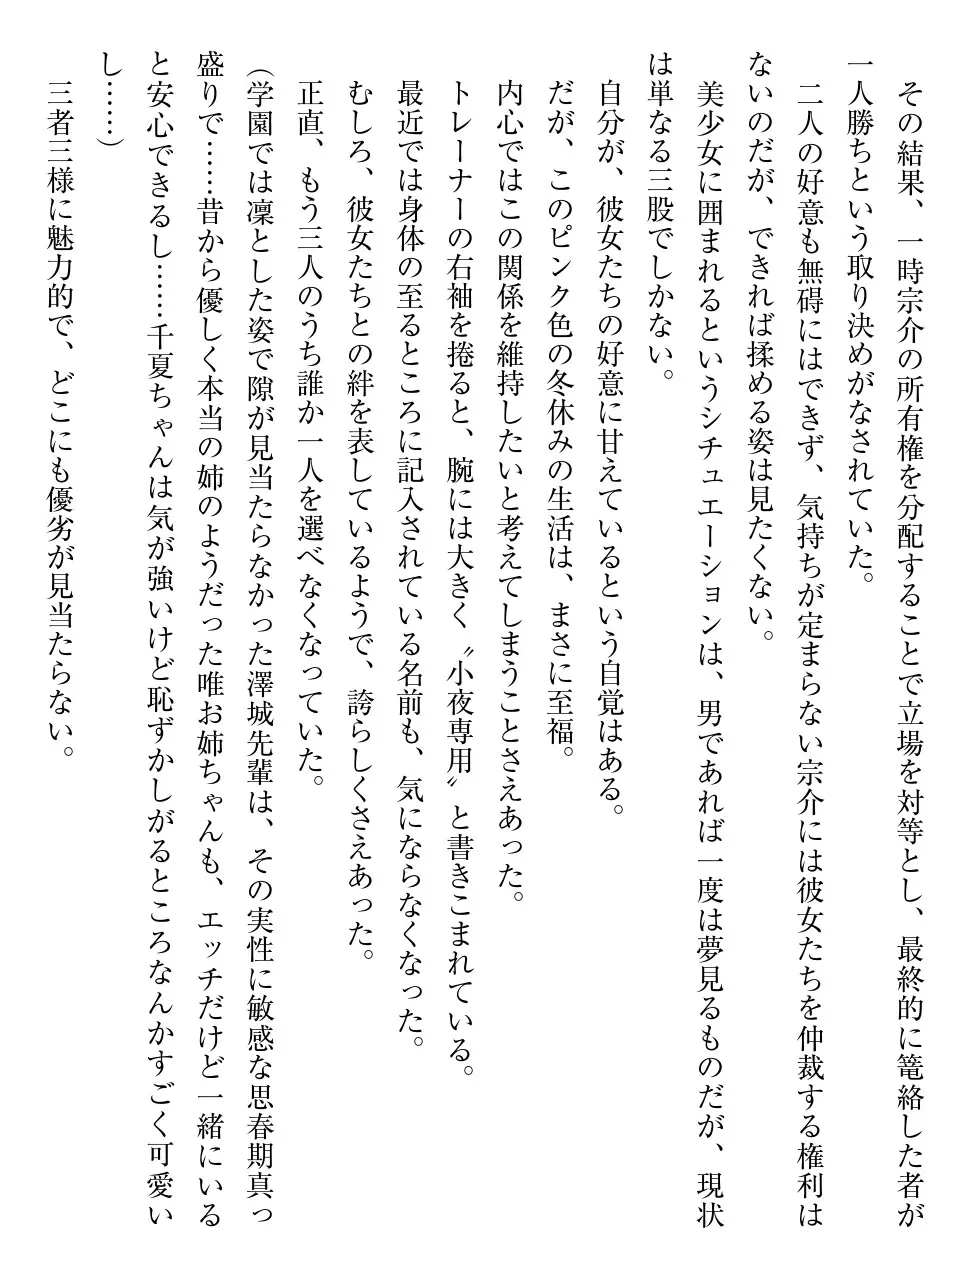 その結果、一時宗介の所有権を分配することで立場を対等とし、最終的に篭絡した者が
一人勝ちという取り決めがなされていた。
二人の好意も無碍にはできず、気持ちが定まらない宗介には彼女たちを仲裁する権利は
ないのだが、できれば揉める姿は見たくない。
美少女に囲まれるというシチュエーションは、男であれば一度は夢見るものだが、現状
は単なる三股でしかない。
自分が、彼女たちの好意に甘えているという自覚はある。
だが、このピンク色の冬休みの生活は、まさに至福。
内心ではこの関係を維持したいと考えてしまうことさえあった。
トレーナーの右袖を捲ると、腕には大きく〝小夜専用〟と書きこまれている。
最近では身体の至るところに記入されている名前も、気にならなくなった。
むしろ、彼女たちとの絆を表しているようで、誇らしくさえあった。
正直、もう三人のうち誰か一人を選べなくなっていた。
（学園では凜とした姿で隙が見当たらなかった澤城先輩は、その実性に敏感な思春期真っ
盛りで……昔から優しく本当の姉のようだった唯お姉ちゃんも、エッチだけど一緒にいる
と安心できるし……千夏ちゃんは気が強いけど恥ずかしがるところなんかすごく可愛い
し……）
三者三様に魅力的で、どこにも優劣が見当たらない。